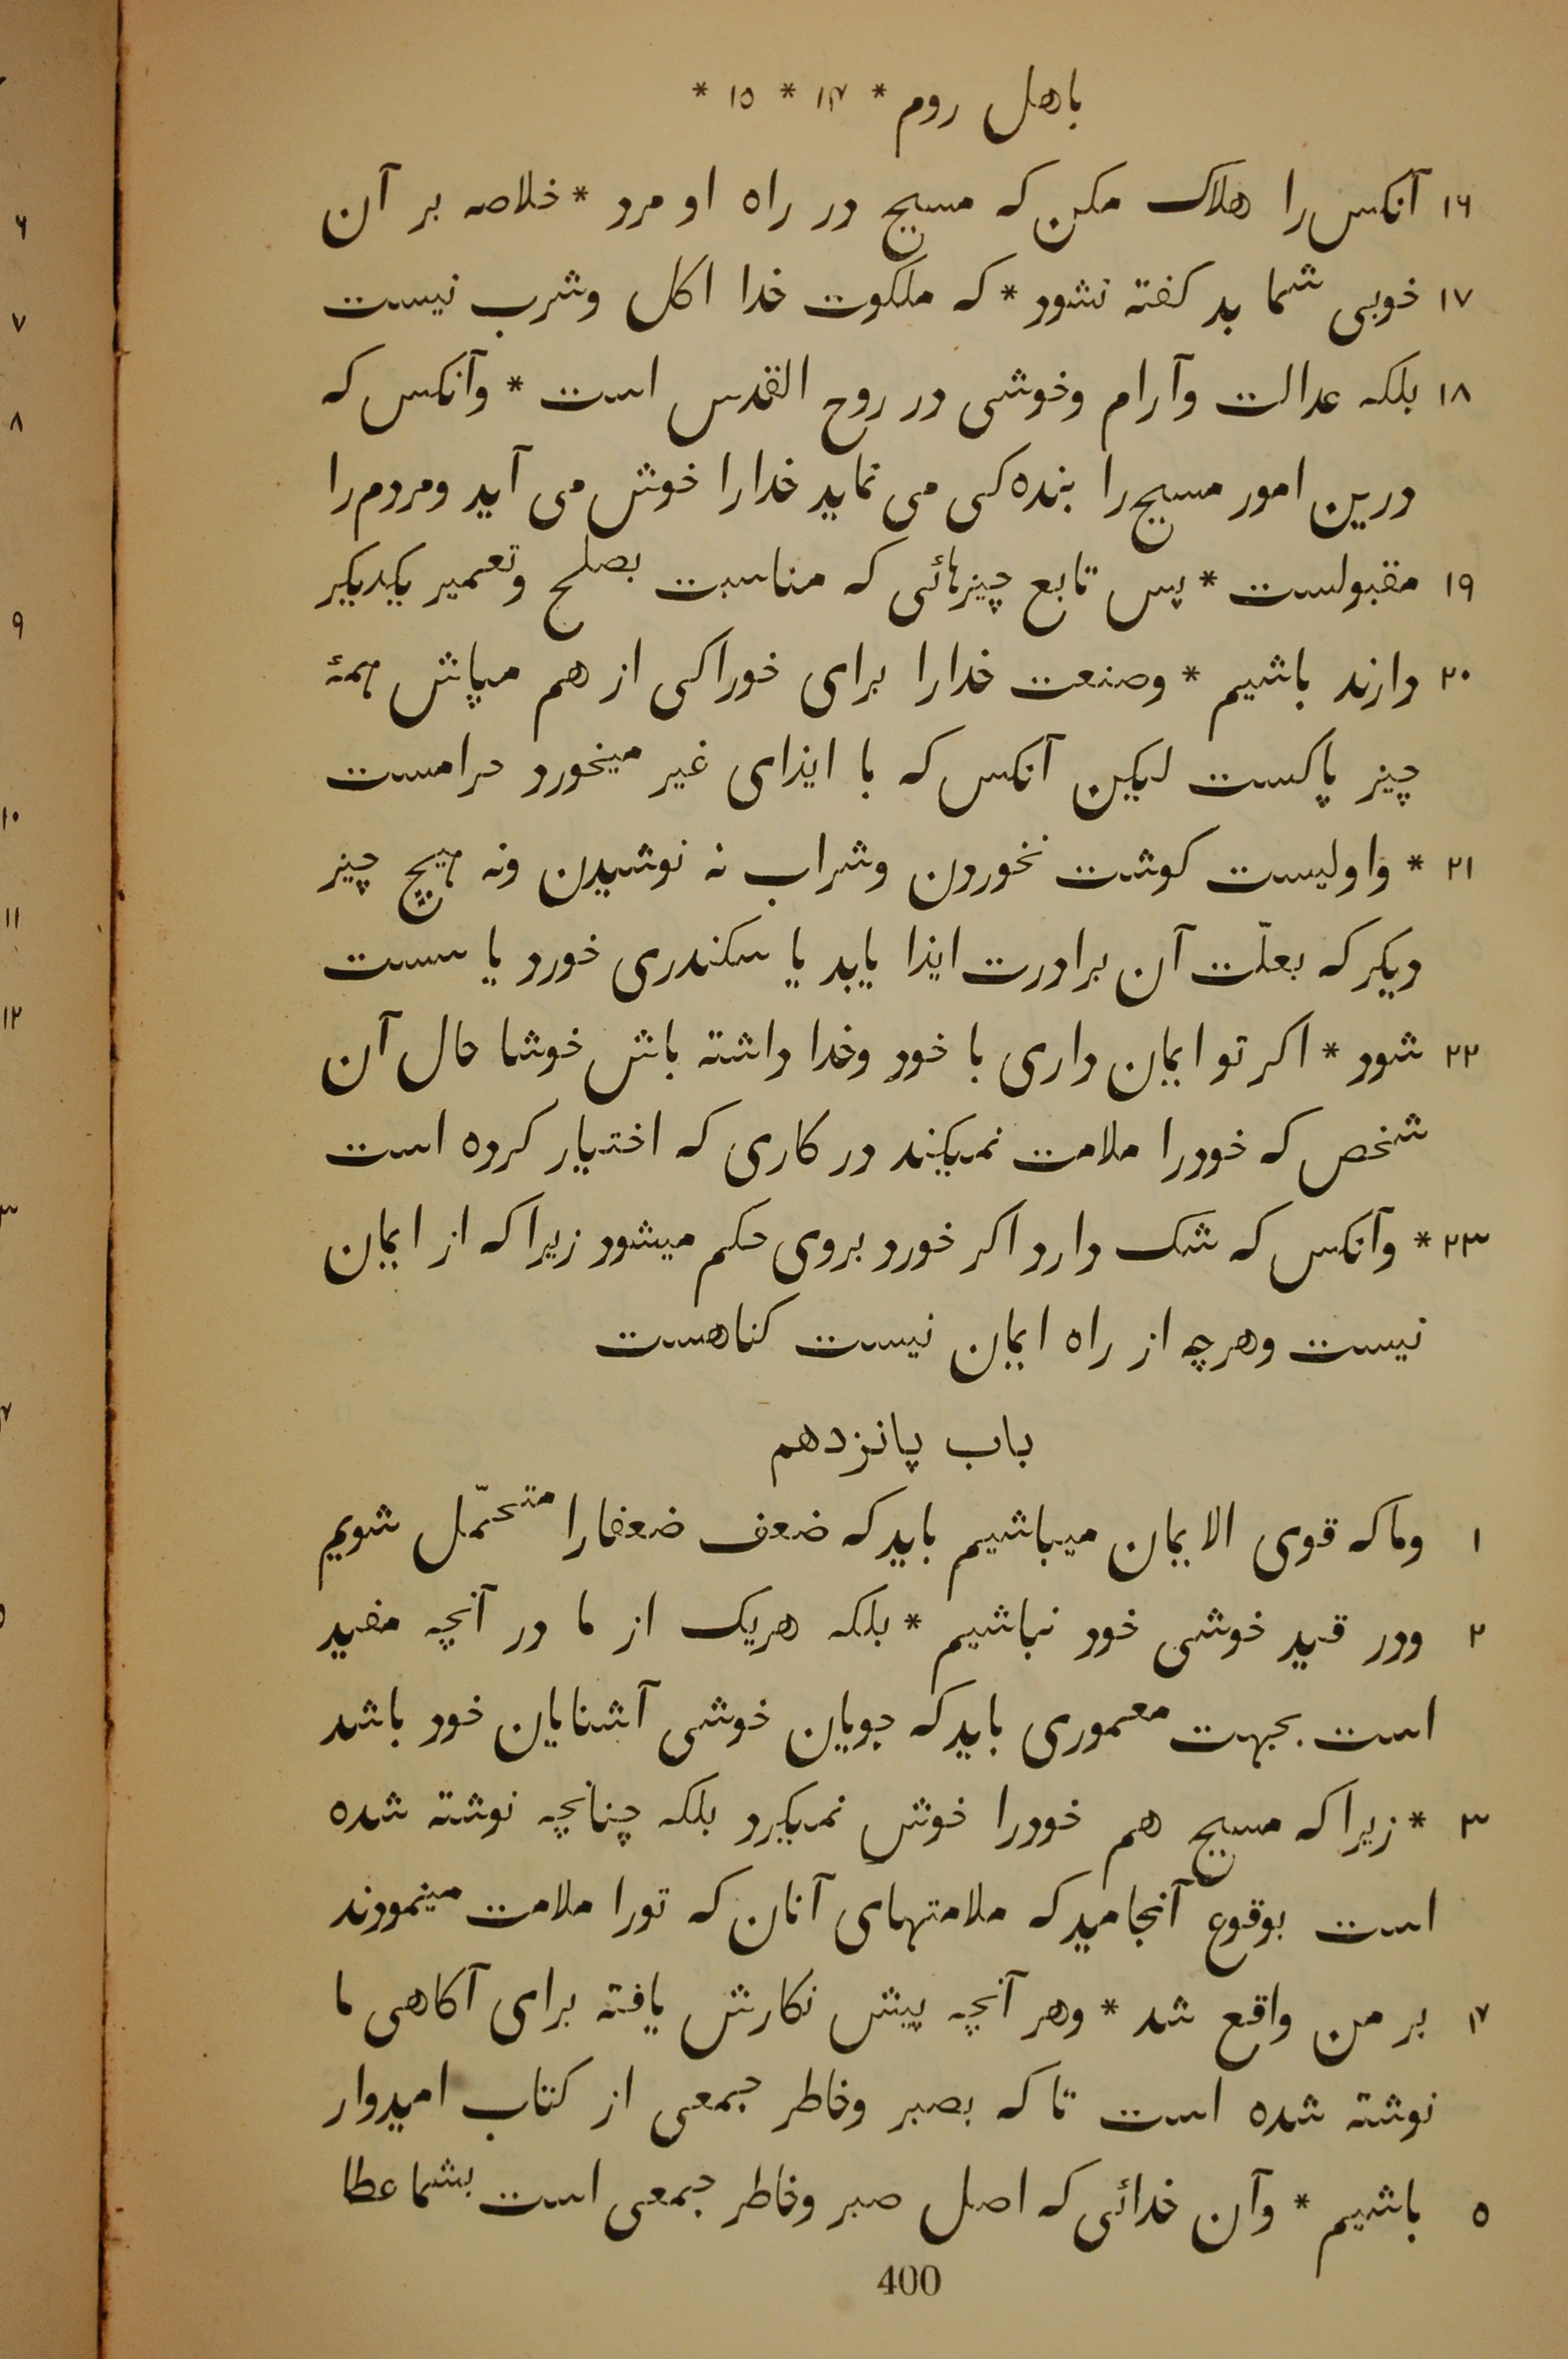 باهل روم * ۱۴ * ۱۵ *
۱۶ آنکس را هلاک مکن که مسیح در راه او مرد * خلاصه بر آن
۱۷ خوبی شما بد کفته نشود * که ملکوت خدا اکل وشرب نیست
۱۸ بلکه عدالت وآرام وخوشی در روح القدس است * وآنکس که
درین امور مسیح را بنده کی می نماید خدارا خوش می آید ومردم را
۱۹ مقبولست * پس تابع چیزهائی که مناسبت بصلح وتعمیر یکدیکر
۲۰ دارند باشیم * وصنعت خدارا برای خوراکی از هم مپاش همهٔ
چیز پاکست لیکن آنکس که با ایذای غیر میخورد حرامست
۲۱ * واولیست کوشت نخوردن وشراب نه نوشیدن ونه هیچ چیز
دیکر که بعلّت آن برادرت ایذا یابد یا سکندری خورد یا سست
۲۲ شود * اکر تو ایمان داری با خود وخدا داشته باش خوشا حال آن
شخص که خودرا ملامت نمیکند در کاری که اختیار کرده است
۲۳ * وآنکس که شک دارد اکر خورد بروی حکم میشود زیرا که از ایمان
نیست وهرچه از راه ایمان نیست کناهست
باب پانزدهم
۱ وما که قوی الایمان میباشیم باید که ضعف ضعفارا متحمّل شویم
۲ ودر قید خوشی خود نباشیم * بلکه هریک از ما در آنچه مفید
است بجهت معموری باید که جویان خوشی آشنایان خود باشد
۳ * زیرا که مسیح هم خودرا خوش نمیکرد بلکه چنانچه نوشته شده
است بوقوع آنجامید که ملامتهای آنان که تورا ملامت مینمودند
۴ بر من واقع شد * وهر آنچه پیش نکارش یافته برای آکاهی ما
نوشته شده است تا که بصبر وخاطر جمعی از کتاب امیدوار
۵ باشیم * وآن خدائی که اصل صبر وخاطر جمعی است بشما عطا
400
۶
۷
۸
۹
۱۰
۱۱
۱۲